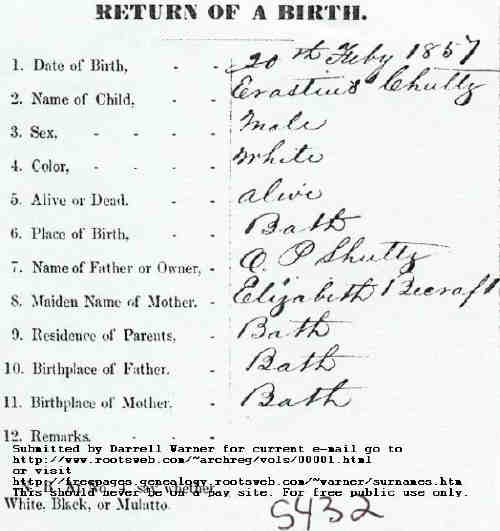 RETURN OF A BIRTH.
1. Date of Birth, - - 20th Feby 1857
2. Name of Child, - - Erastius Chultz
3. Sex, - - - - Male
4. Color, - - - - White
5. Alive or Dead. - - alive
6. Place of Birth, - - Bath
7. Name of Father or Owner, - O. P Shultz
8. Maiden Name of Mother. - Elizabeth Becraft
9. Residence of Parents, - Bath
10. Birthplace of Father. - Bath
11. Birthplace of Mother. - Bath
12. Remarks.
Submitted by Darrell Warner for current e-mail go to
http://www.rootsweb.com/~archreg/vols/00001.html
or visit
http://freepages.genealogy.rootsweb.com/~warner/surnames.htm
This should never be on a pay site. For free public use only.
say whether
White, Black, or Mulatto.
5432